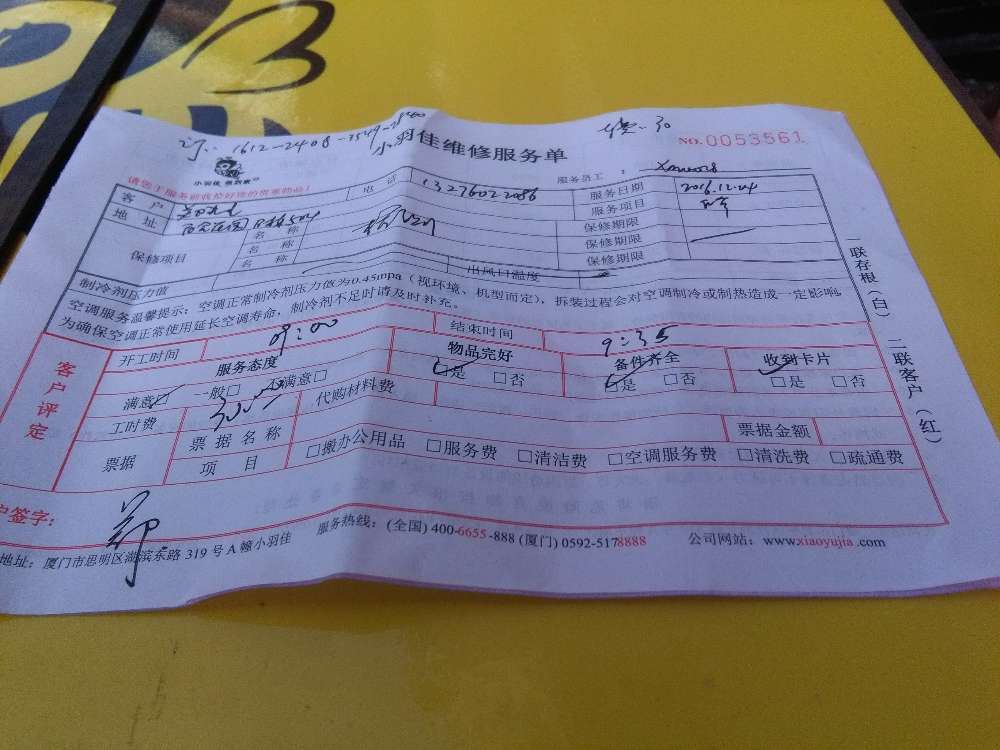 3
1612-2408-3549-
小羽佳维修服务单
NO.0053561
小羽佳
请您于服务前收拾好您的贵重物品!
服务员工:
客户 电话 13276022086 服务日期 2016.12.24
地址 服务项目
保修项目 名称 保修期限
名称 保修期限
名称 保修期限
制冷剂压力值 出风口温度
空调服务温馨提示:空调正常制冷剂压力值为0.45mpa(视环境、机型而定),拆装过程会对空调制冷或制热造成一定影响
为确保空调正常使用延长空调寿命,制冷剂不足时请及时补充。
客户评定
开工时间 09:00 结束时间 9:35
服务态度 物品完好 备件齐全 收到卡片
满意□ 一般□ 不满意□ □是 □否 □是 □否 □是 □否
工时费 代购材料费
票据 票据名称 票据金额
项目 □搬办公用品 □服务费 □清洁费 □空调服务费 □清洗费 □疏通费
户签字: 郑
地址:厦门市思明区湖滨东路319号A幢小羽佳 服务热线:(全国)400-6655-888(厦门)0592-5178888 公司网站:www.xiaoyujia.com
一联存根(白) 二联客户(红)